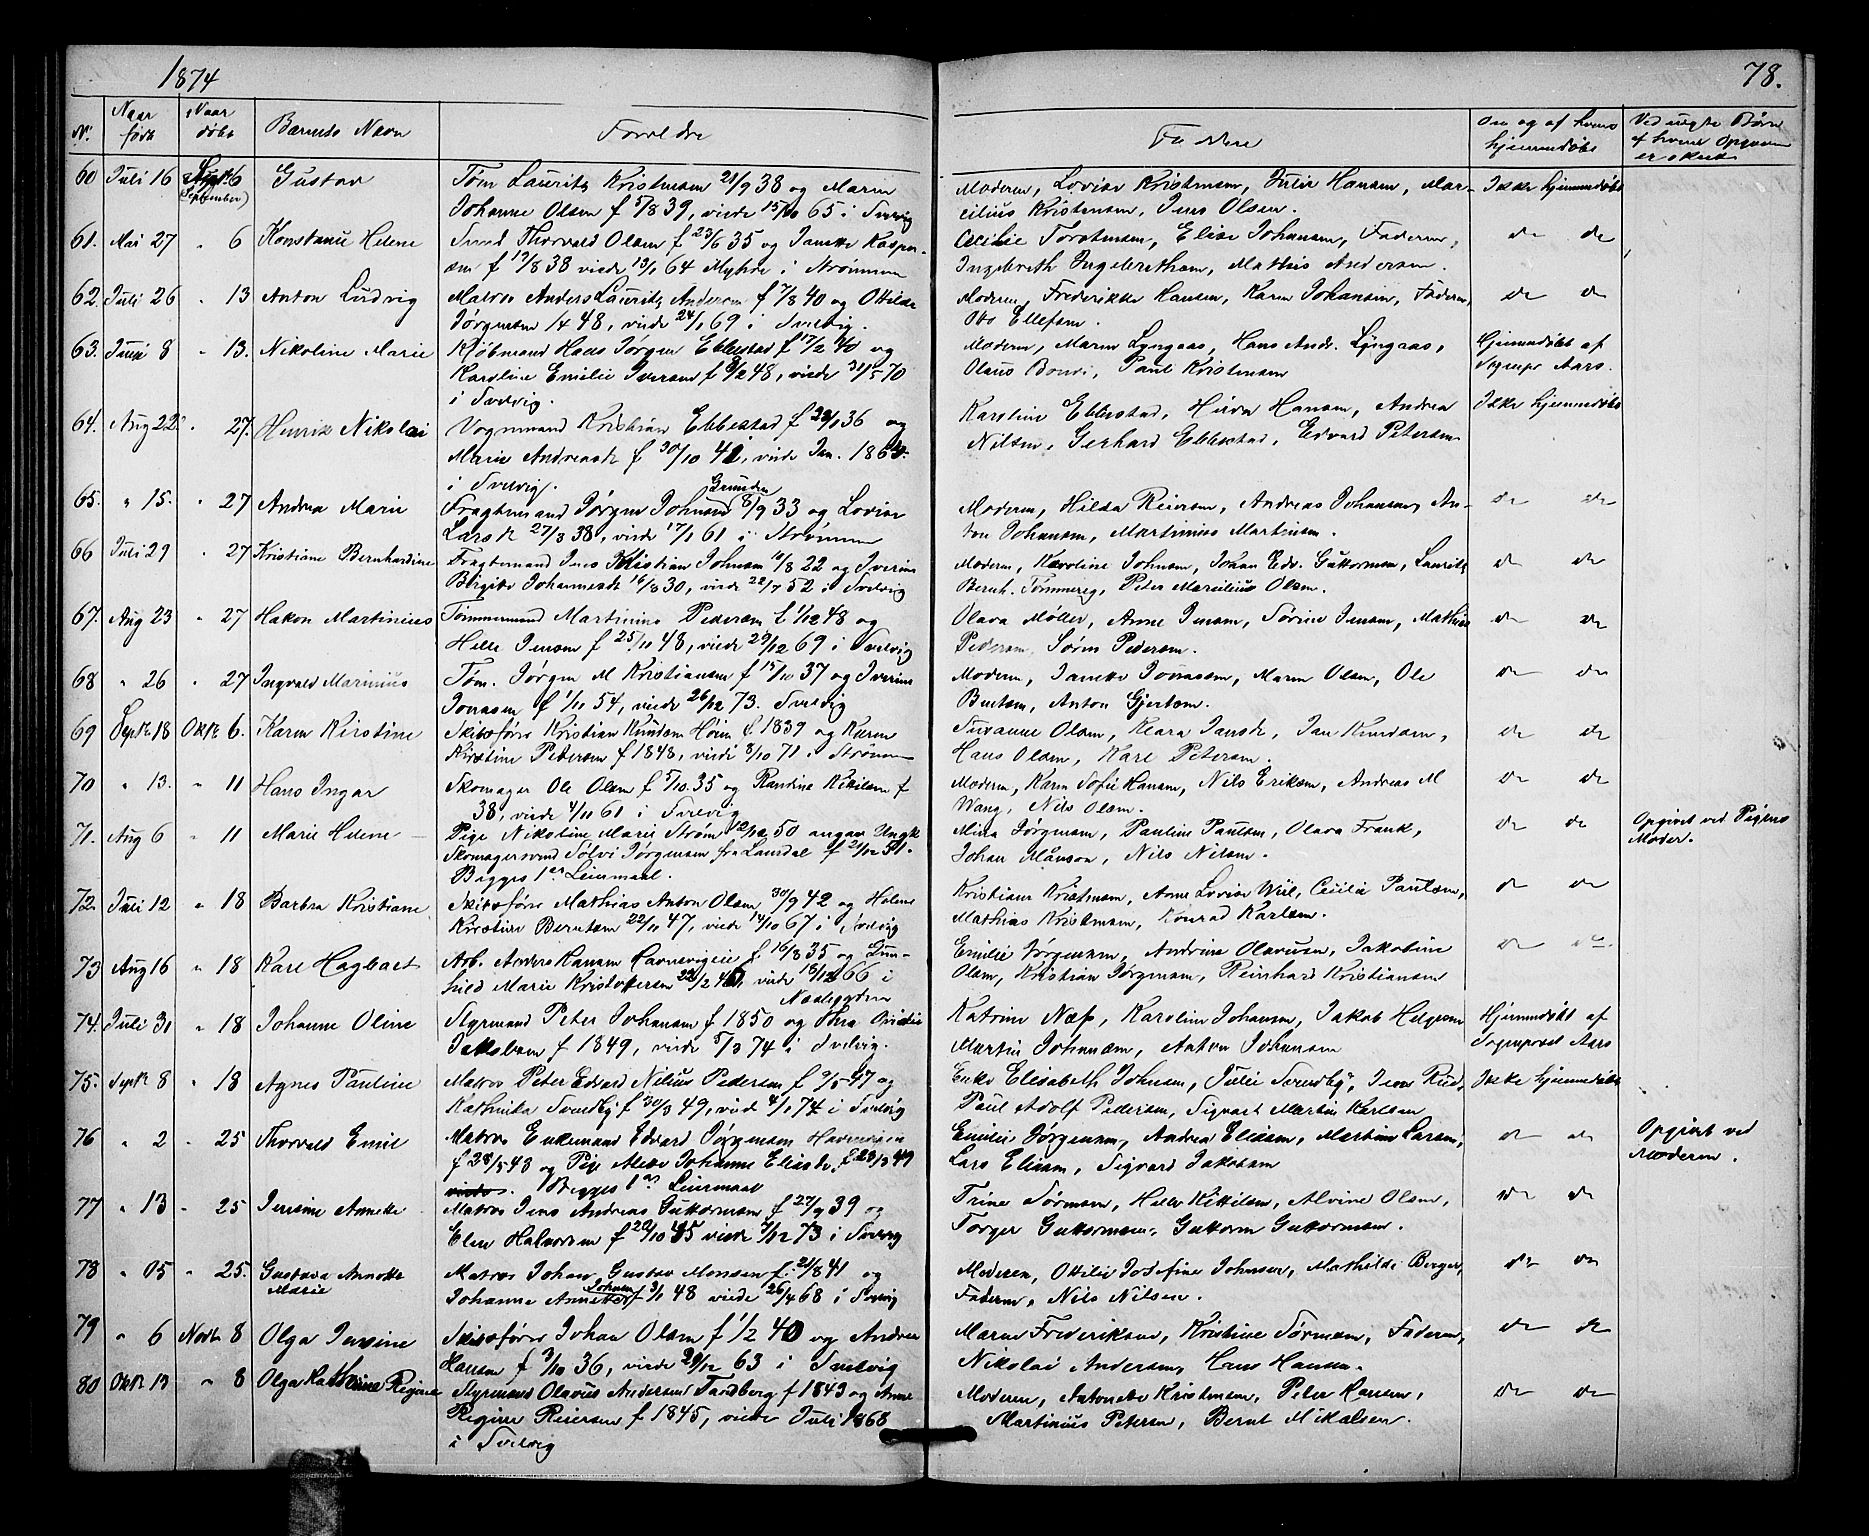 1874
78.
Nr. Naar født Naar døbt Barnets Navn Forældre Faddere Om og af hvem hjemmedøbt Ved uægte Børn af hvem Opgaven er skeet
60 Juli 16 Sept. 6 (September) Gustav Tøm Laurits Kristensen 21/9 38 og Maren
Johanne Olsen f 5/8 39, viede 15/10 65 i Svelvig
Moderen, Lovise Kristensen, Julie Hansen, Mar-
cilius Kristensen, Jens Olsen.
Ikke hjemmedøbt
61. Mai 27 " 6 Konstanse Helene Svend Thorvald Olsen f 23/6 35 og Janette Kasper-
sen f 19/8 38 viede 64 i Strømmen
Cecilie Torstensen, Elise Johansen, Faderen,
Ingebreth Ingebrethsen, Mathis Andersen.
do do
62. Juli 26 " 13 Anton Ludvig Matros Anders Laurits Andersen f 7/8 40 og Ottilde
Jørgensen 48, viede 24/1 69 i Svelvig.
Moderen, Frederikke Hansen, Karen Johansen, Faderen,
Otto Ellefsen.
do do
63. Juni 8 " 13. Nikoline Marie Kjøbmand Hans Jørgen Ebbestad f 17/2 40 og
Karoline Emilie Iversen f 8/2 48, viede 31/5 70
i Svelvig.
Moderen, Maren Lyngaas, Hans Andr. Lyngaas,
Olaus Bonvi, Paul Kristensen
Hjemmedøbt af
Sognepr Aars.
64. Aug 22 " 27. Henrik Nikolai Vognmand Kristian Ebbestad f 36 og
Marie Andreasdt f 30/10 41, viede Jan. 1863
i Svelvig.
Karoline Ebbestad, Hilda Hansen, Andrea
Nilsen, Gerhard Ebbestad, Edvard Petersen
Ikke hjemmedøbt
65. " 15. " 27 Andrea Marie Fragtemand Jørgen Johnsen Grunden 8/9 33 og Lovise
Larsdt 27/3 38, viede 17/1 61 i Strømmen
Moderen, Hilda Reiersen, Andreas Johansen, An-
ton Johansen, Martinius Martinsen.
do do
66 Juli 29 " 27 Kristiane Bernhardine Fragtemand Jens Kristian Johnsen 10/8 22 og Iverine
Birgitte Johannesdt 16/8 30, viede 22/7 52 i Svelvig
Moderen, Karoline Johnsen, Johan Edv. Guttormsen, Laurits
Bernh. Tømmereg, Peter Marcilius Olsen.
do do
67. Aug 23 " 27 Hakon Martinius Tømmermand Martinius Pedersen f 1/12 48 og
Helle Jensen f 25/11 48, viede 29/12 69 i Svelvig
Olava Møller, Anne Jensen, Sørine Jensen, Mathis
Pedersen, Søren Pedersen.
do do
68 " 26 " 27 Ingvald Marinius Tøm. Jørgen M Kristiansen f 15/10 37 og Iverine
Jonasen f 1/11 54, viede 26/12 73. Svelvig
Moderen, Janette Jonassen, Maren Olsen, Ole
Berntsen, Anton Gjertsen.
do do
69 Sept. 18 Okt. 6. Karen Kirstine Skibsfører Kristian Knudsen Høien f. 1839 og Karen
Kirstine Petersen f 1848, viede 8/10 71 i Strømm
Susanne Olsen, Klara Jansdt, Jan Knudsen,
Hans Olsen, Karl Petersen.
do do
70 " 13. " 11 Hans Ingar Skomager Ole Olsen f 5/10 35 og Randine Kittilsen f
38, viede 4/11 61 i Svelvig
Moderen, Karen Sofie Hansen, Nils Eriksen, Andreas M
Wang, Nils Olsen.
do do
71. Aug 6 " 11 Marie Helene Pige Nikoline Marie Strøm 12/12 50 angav Ungk
Skomagersvend Sølvi Jørgensen fra Laurdal f 21/12 51.
Begges 1ste Leiermaal.
Mina Jørgensen, Pauline Paulsen, Olava Frank,
Johan Månson, Nils Nilsen.
do do Opgivet ved Pigens
Moder.
72. Juli 12 " 18 Barbra Kristiane Skibsfører Mathias Anton Olsen 30/9 42 og Helene
Kirstine Berntsen 22/11 47, viede 14/10 67 i Svelvig
Kristiane Kristensen, Anne Lovise Wiil, Cecilie Paulsen,
Mathias Kristensen, Konrad Karlsen.
do do
73 Aug 16 " 18 Karl Hagbart Arb. Anders Hansen Havnevigeie f. 16/3 35 og Gun-
hild Marie Kristoffersen 22/2 viede 18/12 66 i
Næsbygden
Emilie Jørgensen, Andrine Olavesen, Jakobine
Olsen, Kristian Jørgensen, Reinhard Kristiansen
do do
74. Juli 31 " 18 Johanne Oline Styrmand Peter Johansen f 1850 og Thea
Jakobsen f 1849, viede 5/3 74 i Svelvig.
Katrine Næss, Karoline Johansen, Jakob Helgesen
Martin Johansen, Anton Johansen
Hjemmedøbt af
Sogneprest Aars
75. Sept 8 " 18 Agnes Pauline Matros Peter Edvard Nilius Pedersen f 9/5 47 og
Kathinka Svendby f 30/3 49, viede 4/1 74 i Svelvig
Enke Elisabeth Johnsen, Julie Svendby, Jens Rud,
Paul Adolf Pedersen, Sigvart Martin Karlsen
Ikke hjemmedøbt
76 " 2 " 25 Thorvald Emil Matros Enkemand Edvard Jørgensen Havnevigen
f 28/5 43 og Pige Johanne Eliasdt. f 23/3 49
viede. Begges 1ste Leiermaal
Emilie Jørgensen, Andrea Eliasen, Martin Larsen,
Lars Eliasen, Sigvard Jakobsen
do do Opgivet ved
Moderen.
77 " 13 " 25 Jensine Annette Matros Jens Andreas Guttormsen f 27/9 39 og
Elen Halvorsen f 20/10 45 viede 7/12 73 i Svelvig
Trine Sørensen, Helle Kittilsen, Alvine Olsen,
Torger Guttormsen, Guttorm Guttormsen.
do do
78 " 05 " 25. Gustava Annette Marie Matros Johan Gustav Monsen f. 21/8 41 og
Johanne Annette Johnsen f 3/1 48 viede 26/4 68 i Svelvig
Moderen, Ottilie Josefine Johnsen, Mathilde Berger,
Faderen, Nils Nilsen.
do do
79 " 6 Novbr 8 Olga Jensine Skibsfører Johan Olsen f 1/2 40 og Andrea
Hansen f 3/10 36, viede 29/12 63 i Svelvig
Maren Frederiksen, Kristine Sørensen, Faderen,
Nikolai Andersen, Hans Hansen.
do do
80 Okt 13 " 8 Olga Kathrine Regine Styrmand Olavus Andersen Tandberg f 1843 og Anne
Regine Reiersen f 1845, viede Juli 1868
i Svelvig
Moderen, Antonette Kristensen, Peter Hansen,
Martinius Petersen, Bernt Mikalsen.
do do